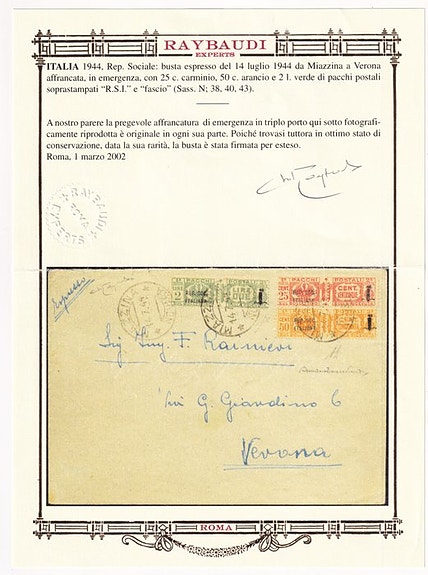 RAYBAUDI
EXPERTS
ITALIA 1944, Rep. Sociale: busta espresso del 14 luglio 1944 da Miazzina a Verona
affrancata, in emergenza, con 25 c. carminio, 50 c. arancio e 2 l. verde di pacchi postali
soprastampati “R.S.I.” e “fascio” (Sass. N; 38, 40, 43).
A nostro parere la pregevole affrancatura di emergenza in triplo porto qui sotto fotografi-
camente riprodotta è originale in ogni sua parte. Poiché trovasi tuttora in ottimo stato di
conservazione, data la sua rarità, la busta è stata firmata per esteso.
Roma, 1 marzo 2002
RAYBAUDI
ROMA
EXPERTS
Espresso
PACCHI POSTALI
2 LIRE DUE
PACCHI POSTALI
25 CENT
50 CENT
Sig Ing. F. Rainieri
Via G. Giardino 6
Verona
ROMA